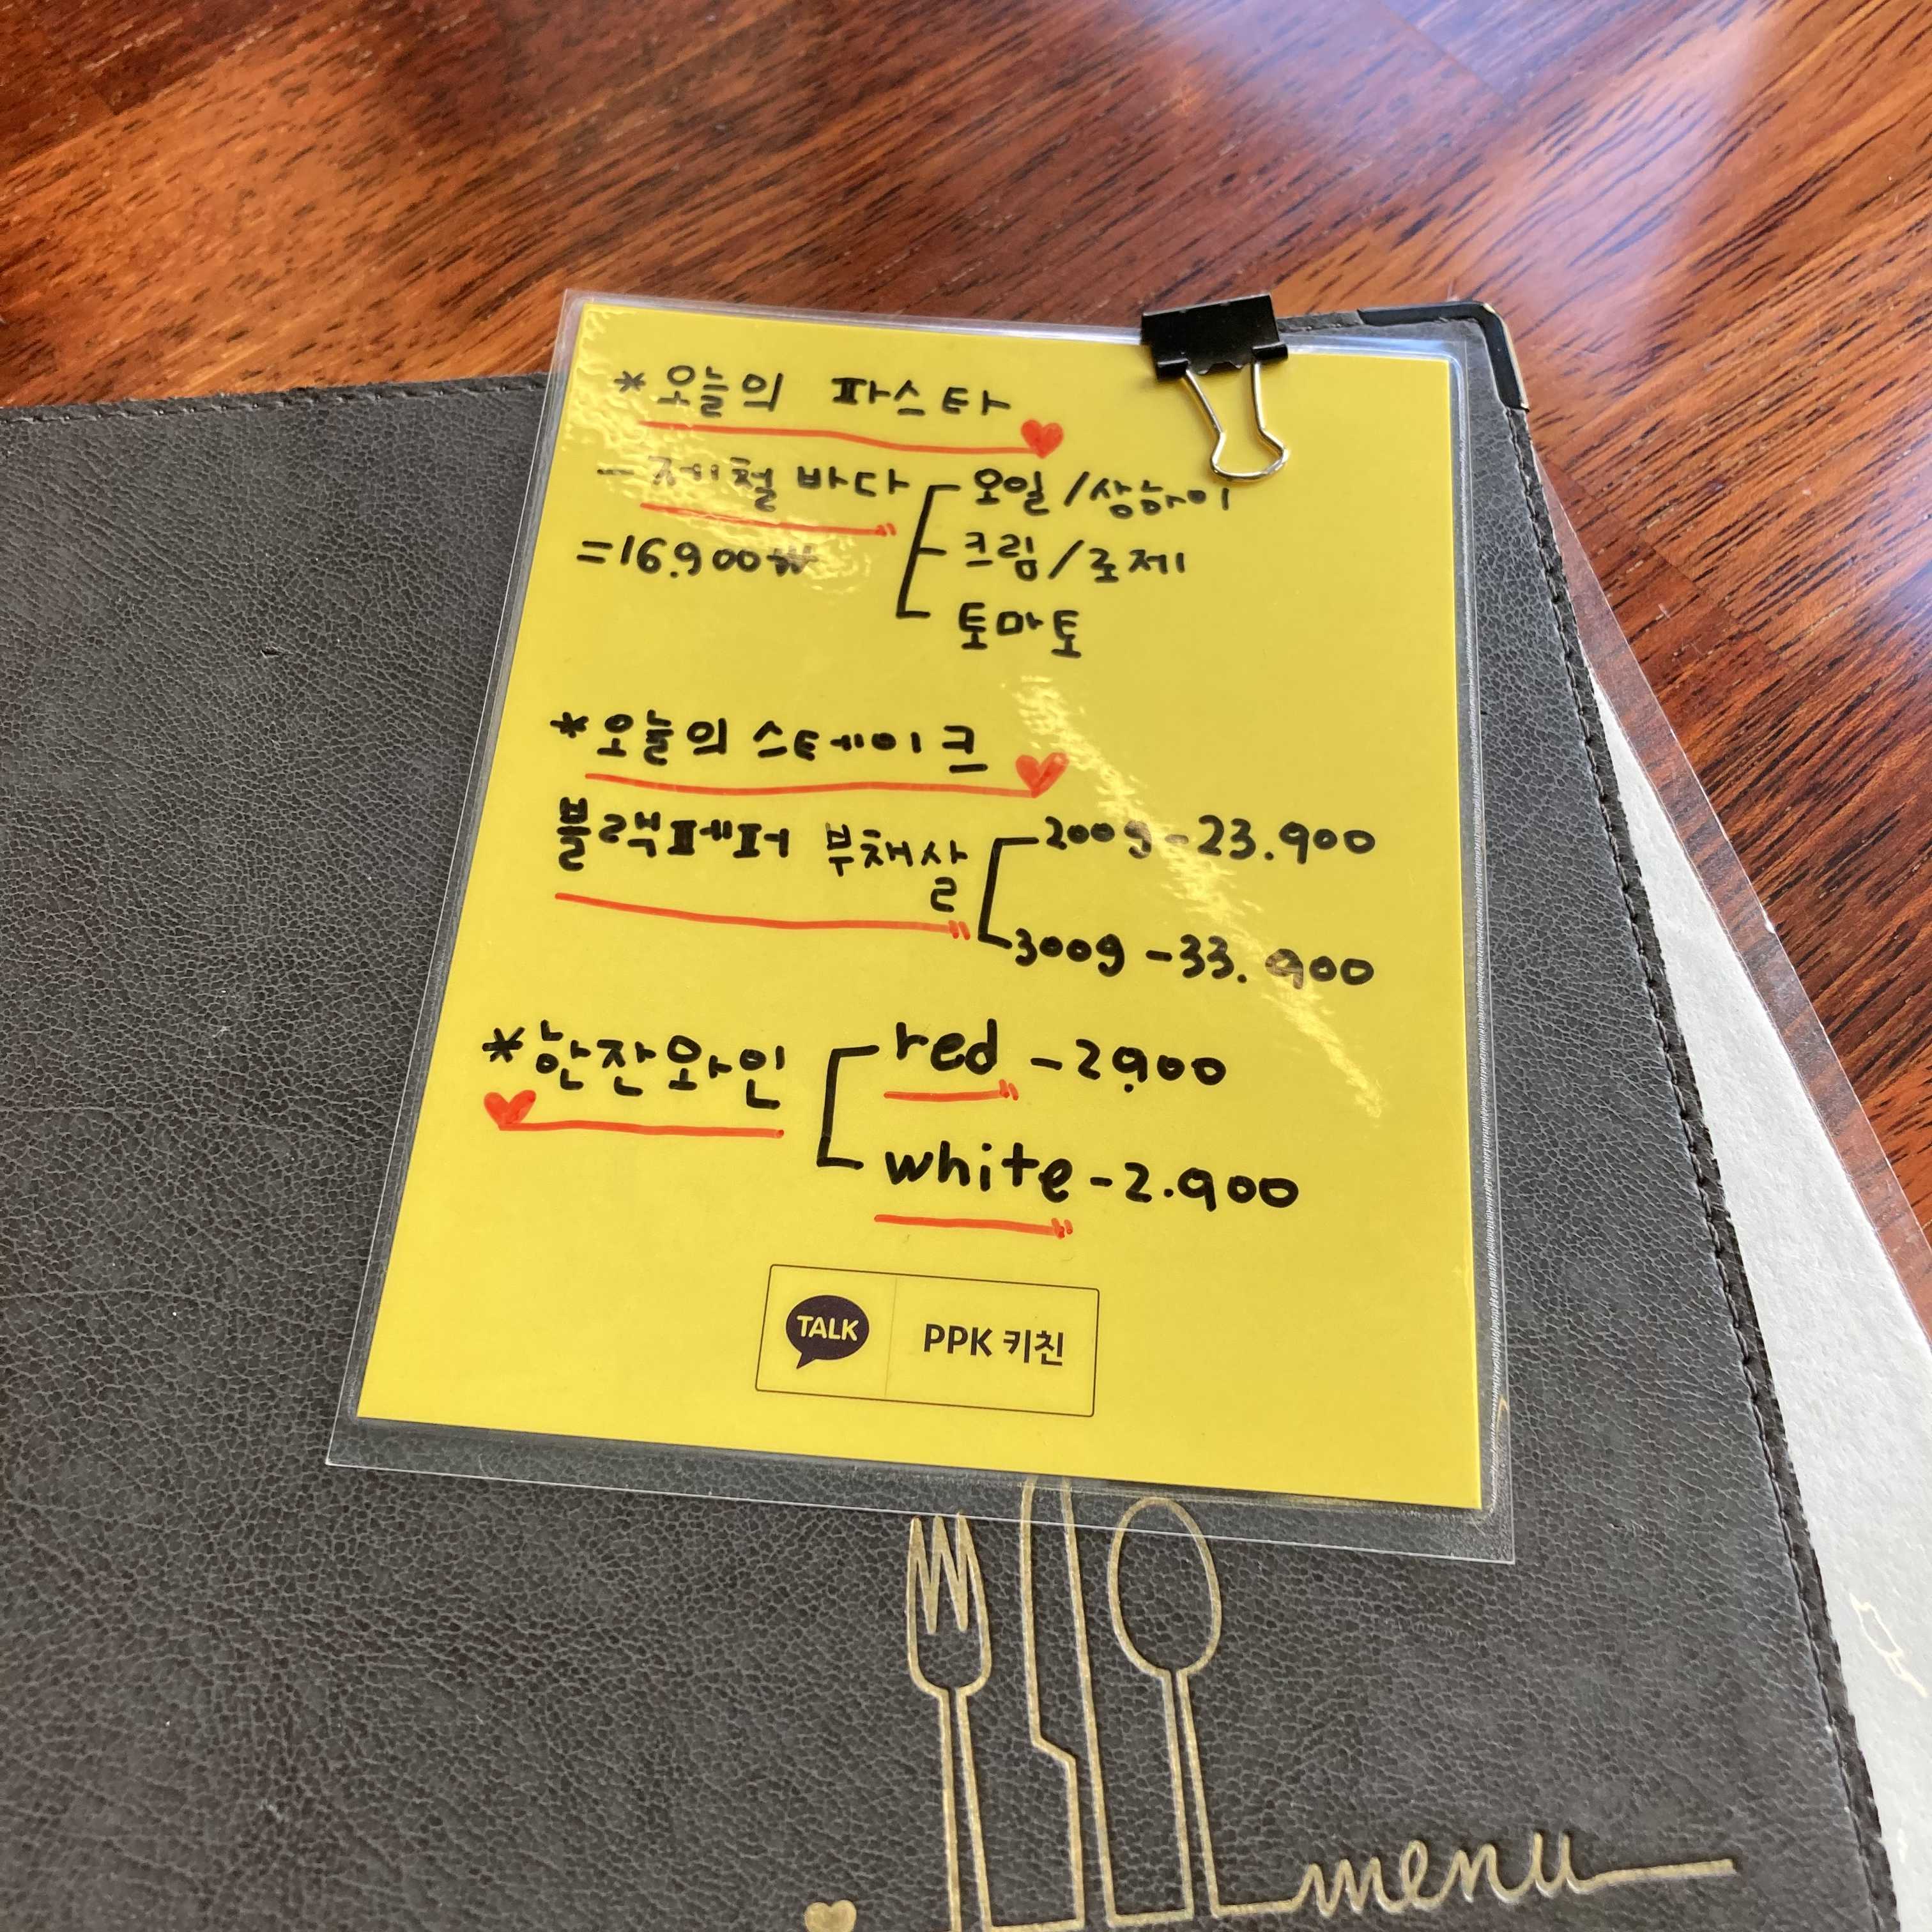 *오늘의 파스타
- 제철 바다 오일/상하이
=16.900₩ 크림/로제
토마토
*오늘의 스테이크
블랙페퍼 부채살 200g-23.900
300g-33.900
*한잔와인 red-2.900
white-2.900
TALK PPK 키친
menu